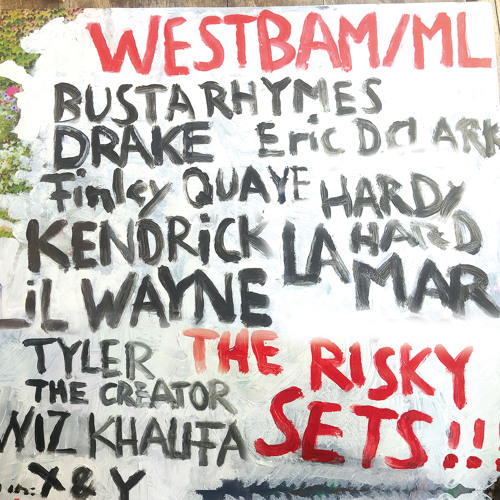 WESTBAM/ML
BUSTA RHYMES
DRAKE Eric D CLARK
Finley QUAYE HARDY
HARD
KENDRICK LAMAR
LiL WAYNE
TYLER THE CREATOR
THE RISKY SETS!!!
WIZ KHALIFA
X & Y